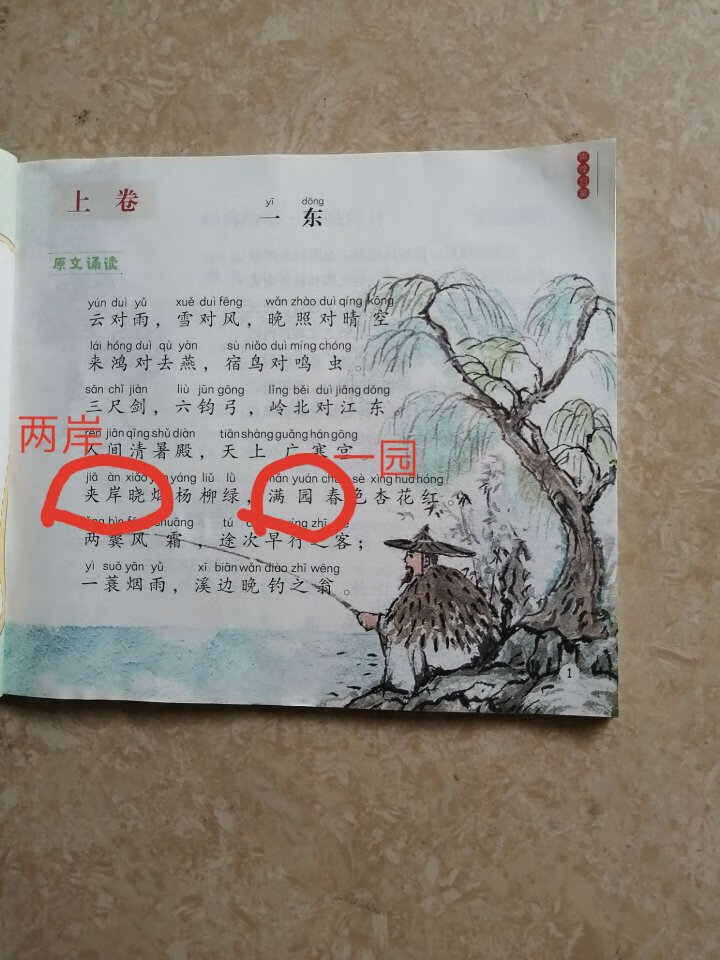 上卷
yī dōng
一东
声律启蒙
原文诵读
yún duì yǔ xuě duì fēng wǎn zhào duì qíng kōng
云对雨，雪对风，晚照对晴空
lái hóng duì qù yàn sù niǎo duì míng chóng
来鸿对去燕，宿鸟对鸣虫。
sān chǐ jiàn liù jūn gōng lǐng běi duì jiāng dōng
三尺剑，六钧弓，岭北对江东。
两岸
rén jiān qīng shǔ diàn tiān shàng guǎng hán gōng
人间清暑殿，天上广寒宫
一园
jiā àn xiǎo yáng liǔ lǜ mǎn yuán sè xìng huā hóng
夹岸晓烟杨柳绿，满园春色杏花红。
shuāng tú zhī
两鬓风霜，途次早行之客；
yì suō yān yǔ xī biān wǎn diào zhī wēng
一蓑烟雨，溪边晚钓之翁。
1